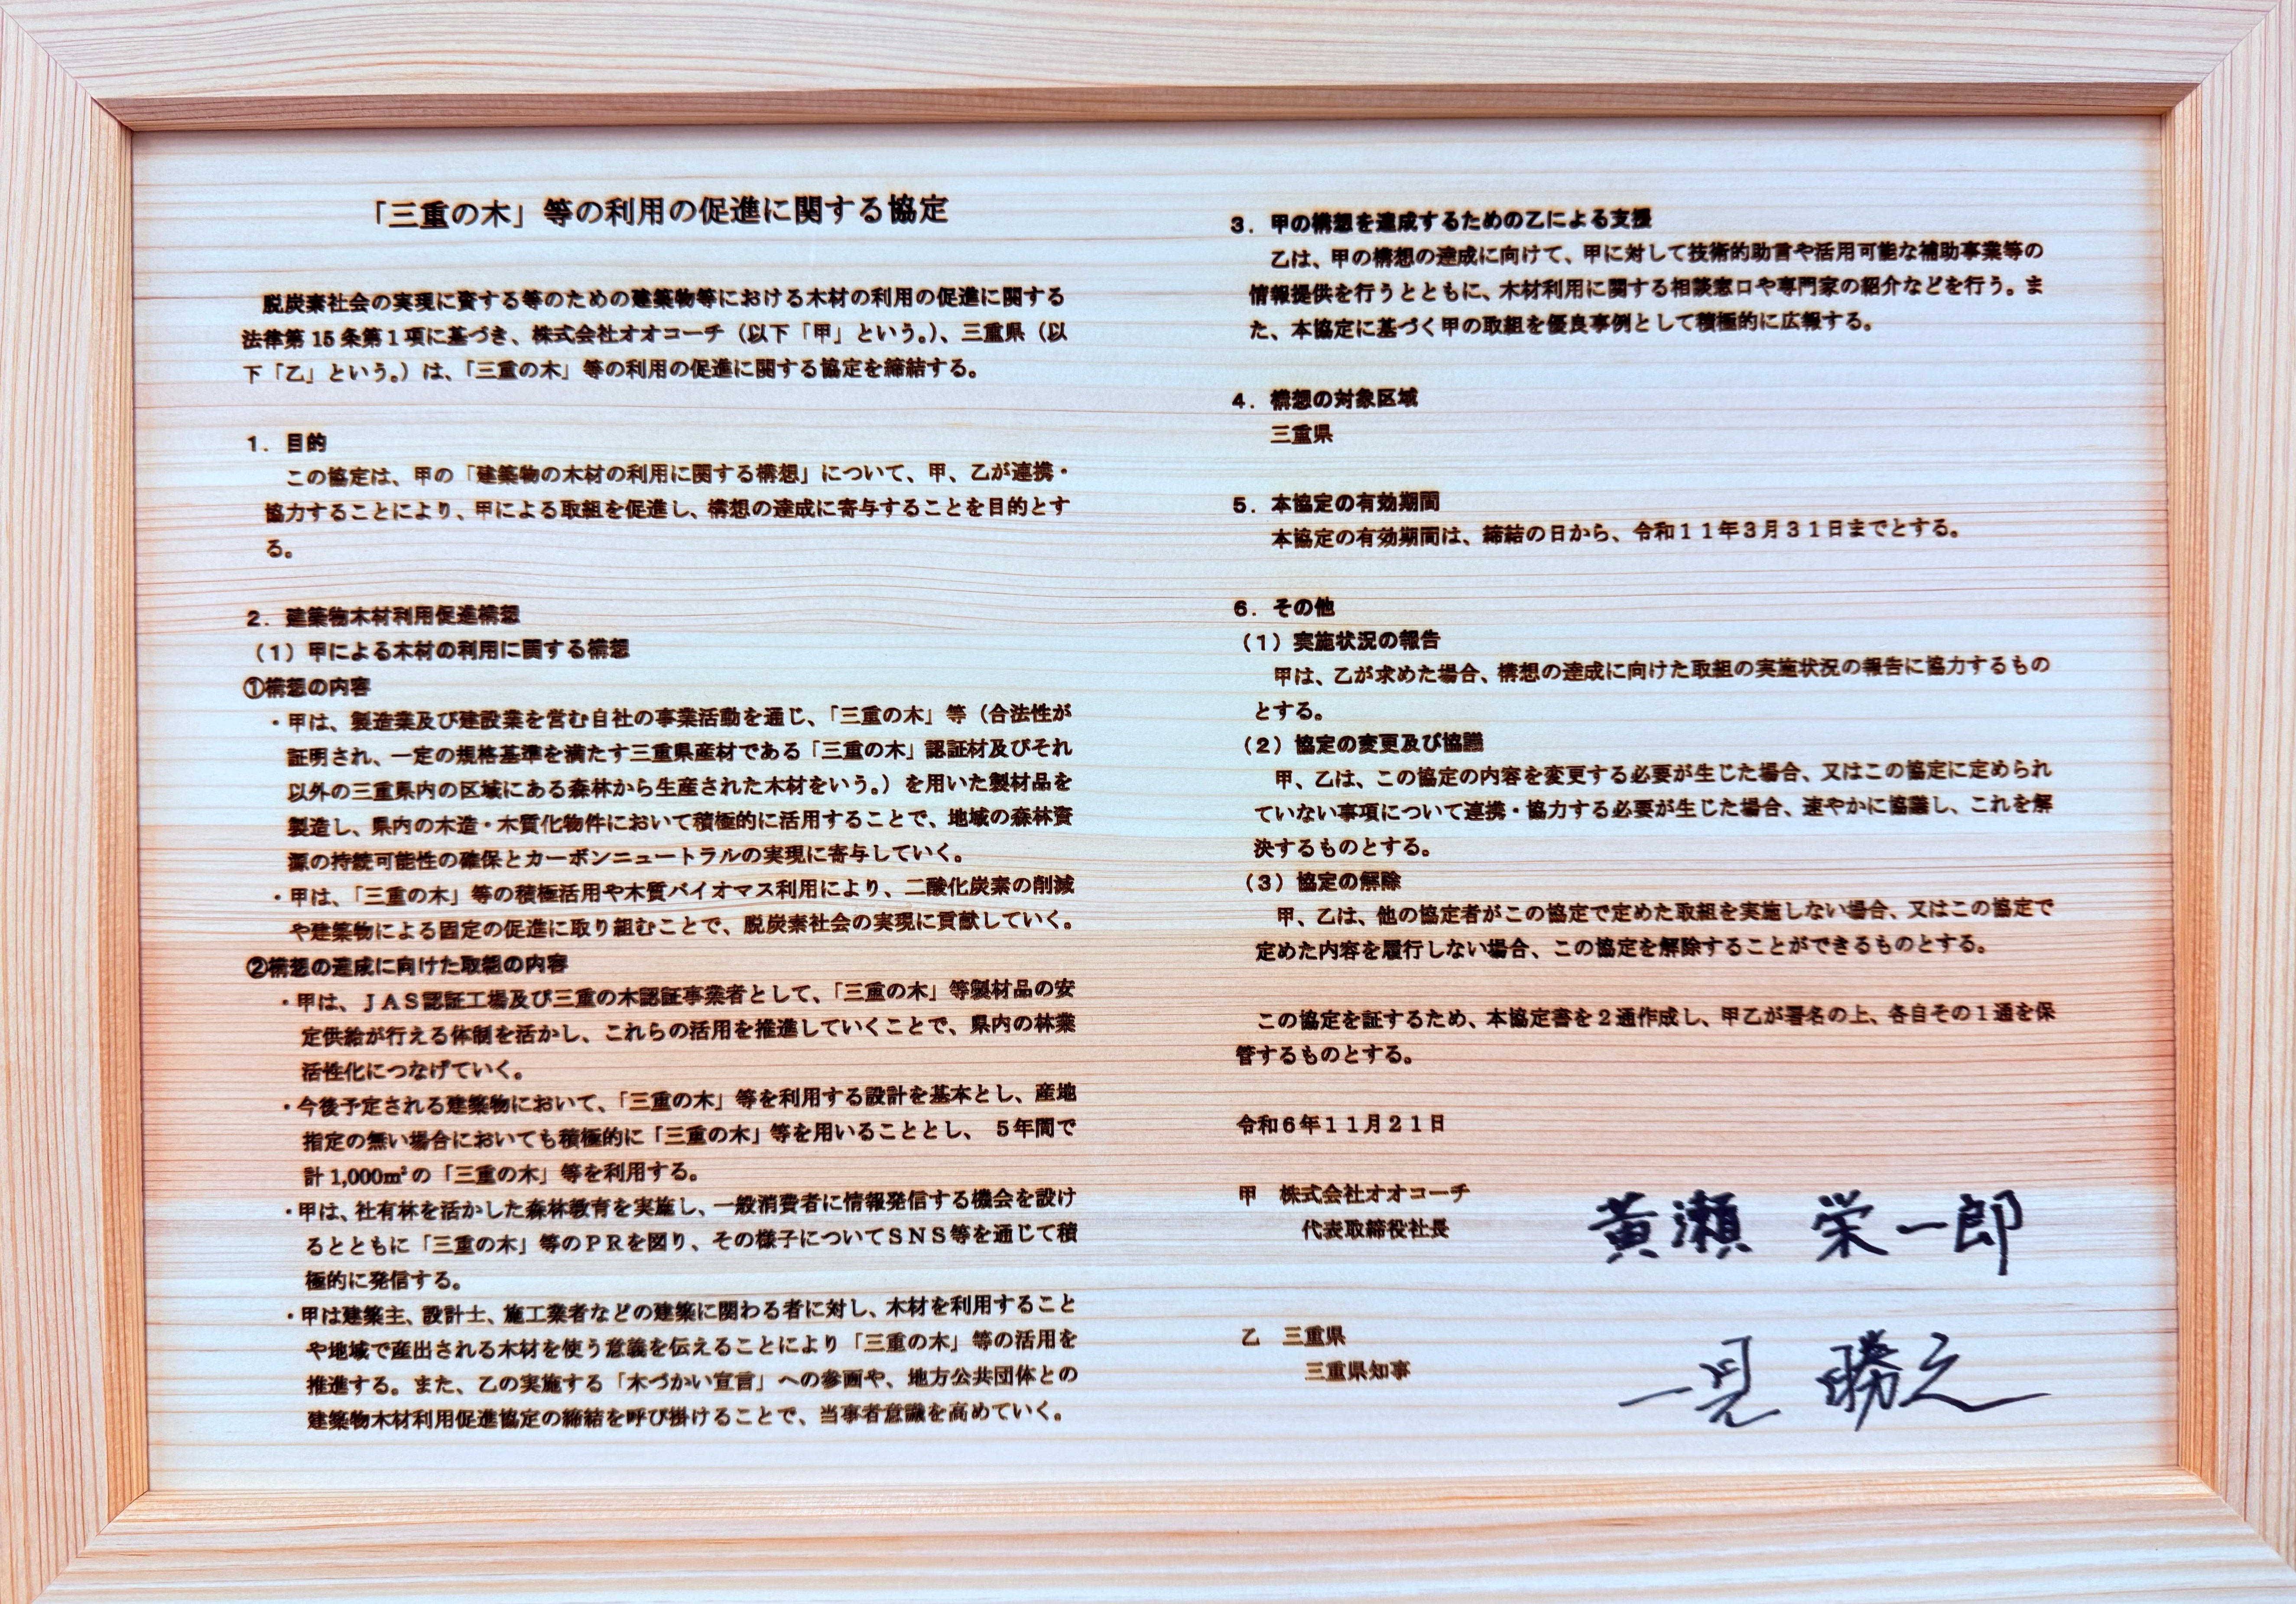 「三重の木」等の利用の促進に関する協定
脱炭素社会の実現に資する等のための建築物等における木材の利用の促進に関する
法律第 15 条第１項に基づき、株式会社オオコーチ（以下「甲」という。）、三重県（以
下「乙」という。）は、「三重の木」等の利用の促進に関する協定を締結する。
１．目的
この協定は、甲の「建築物の木材の利用に関する構想」について、甲、乙が連携・
協力することにより、甲による取組を促進し、構想の達成に寄与することを目的とす
る。
２．建築物木材利用促進構想
（１）甲による木材の利用に関する構想
①構想の内容
・甲は、製造業及び建設業を営む自社の事業活動を通じ、「三重の木」等（合法性が
証明され、一定の規格基準を満たす三重県産材である「三重の木」認証材及びそれ
以外の三重県内の区域にある森林から生産された木材をいう。）を用いた製材品を
製造し、県内の木造・木質化物件において積極的に活用することで、地域の森林資
源の持続可能性の確保とカーボンニュートラルの実現に寄与していく。
・甲は、「三重の木」等の積極活用や木質バイオマス利用により、二酸化炭素の削減
や建築物による固定の促進に取り組むことで、脱炭素社会の実現に貢献していく。
②構想の達成に向けた取組の内容
・甲は、ＪＡＳ認証工場及び三重の木認証事業者として、「三重の木」等製材品の安
定供給が行える体制を活かし、これらの活用を推進していくことで、県内の林業
活性化につなげていく。
・今後予定される建築物において、「三重の木」等を利用する設計を基本とし、産地
指定の無い場合においても積極的に「三重の木」等を用いることとし、 ５年間で
計 1,000㎥の「三重の木」等を利用する。
・甲は、社有林を活かした森林教育を実施し、一般消費者に情報発信する機会を設け
るとともに「三重の木」等のＰＲを図り、その様子についてＳＮＳ等を通じて積
極的に発信する。
・甲は建築主、設計士、施工業者などの建築に関わる者に対し、木材を利用すること
や地域で産出される木材を使う意義を伝えることにより「三重の木」等の活用を
推進する。また、乙の実施する「木づかい宣言」への参画や、地方公共団体との
建築物木材利用促進協定の締結を呼び掛けることで、当事者意識を高めていく。
３．甲の構想を達成するための乙による支援
乙は、甲の構想の達成に向けて、甲に対して技術的助言や活用可能な補助事業等の
情報提供を行うとともに、木材利用に関する相談窓口や専門家の紹介などを行う。ま
た、本協定に基づく甲の取組を優良事例として積極的に広報する。
４．構想の対象区域
三重県
５．本協定の有効期間
本協定の有効期間は、締結の日から、令和１１年３月３１日までとする。
６．その他
（１）実施状況の報告
甲は、乙が求めた場合、構想の達成に向けた取組の実施状況の報告に協力するもの
とする。
（２）協定の変更及び協議
甲、乙は、この協定の内容を変更する必要が生じた場合、又はこの協定に定められ
ていない事項について連携・協力する必要が生じた場合、速やかに協議し、これを解
決するものとする。
（３）協定の解除
甲、乙は、他の協定者がこの協定で定めた取組を実施しない場合、又はこの協定で
定めた内容を履行しない場合、この協定を解除することができるものとする。
この協定を証するため、本協定書を２通作成し、甲乙が署名の上、各自その１通を保
管するものとする。
令和６年１１月２１日
甲 株式会社オオコーチ
代表取締役社長 黄瀬 栄一郎
乙 三重県
三重県知事 一見 勝之